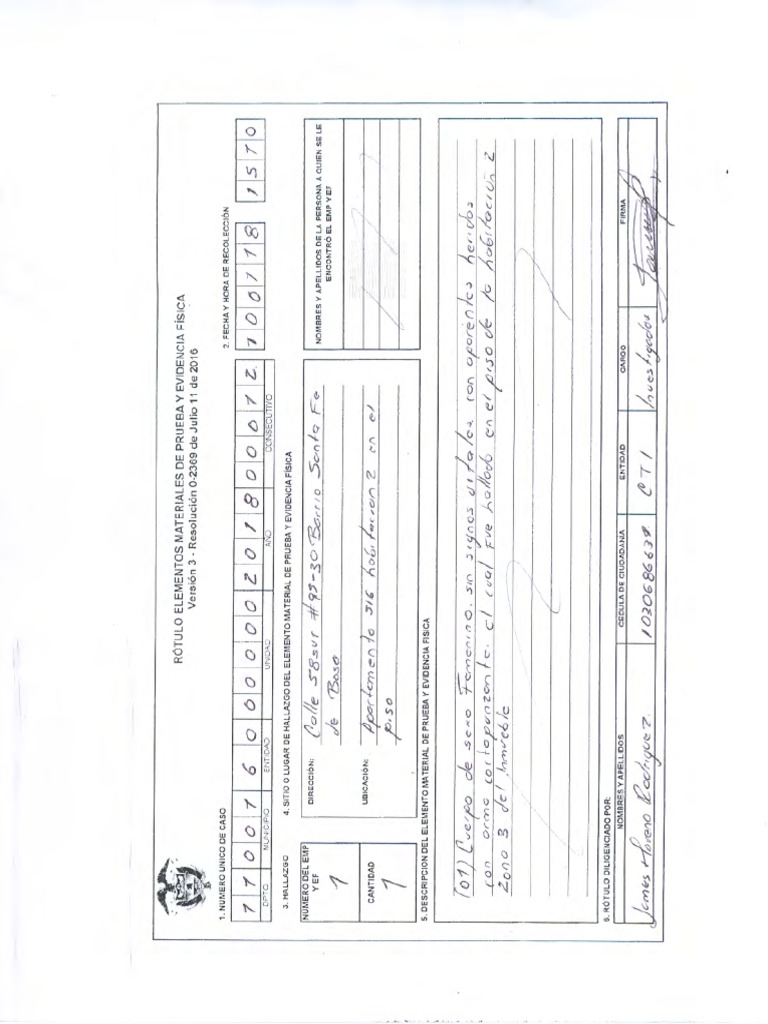 RÓTULO ELEMENTOS MATERIALES DE PRUEBA Y EVIDENCIA FÍSICA
Versión 3 - Resolución 0-2369 de Julio 11 de 2016
1. NUMERO UNICO DE CASO
2. FECHA Y HORA DE RECOLECCIÓN
1 1 0 0 1 6 0 0 0 0 0 2 0 1 8 0 0 0 1 2
1 0 0 7 1 8 1 5 1 0
DPTO. MUNICIPIO ENTIDAD UNIDAD AÑO CONSECUTIVO
3. HALLAZGO
4. SITIO O LUGAR DE HALLAZGO DEL ELEMENTO MATERIAL DE PRUEBA Y EVIDENCIA FÍSICA
NUMERO DEL EMP Y EF
1
CANTIDAD
1
DIRECCIÓN: Calle 58 sur #99-30 Barrio Santa Fe
de Bosa
UBICACIÓN: Apartamento 316 habitacion 2 en el
piso
NOMBRES Y APELLIDOS DE LA PERSONA A QUIEN SE LE
ENCONTRÓ EL EMP Y EF
5. DESCRIPCION DEL ELEMENTO MATERIAL DE PRUEBA Y EVIDENCIA FISICA
(01) Cuerpo de sexo Femenino. sin signos vitales con aparentes heridas
con arma cortopunzante. el cual Fue hallado en el piso de la habitación 2
Zona 3 del inmueble
6. RÓTULO DILIGENCIADO POR:
NOMBRES Y APELLIDOS CEDULA DE CIUDADANIA ENTIDAD CARGO FIRMA
James Moreno Rodriguez 1030686639 CTI Investigador